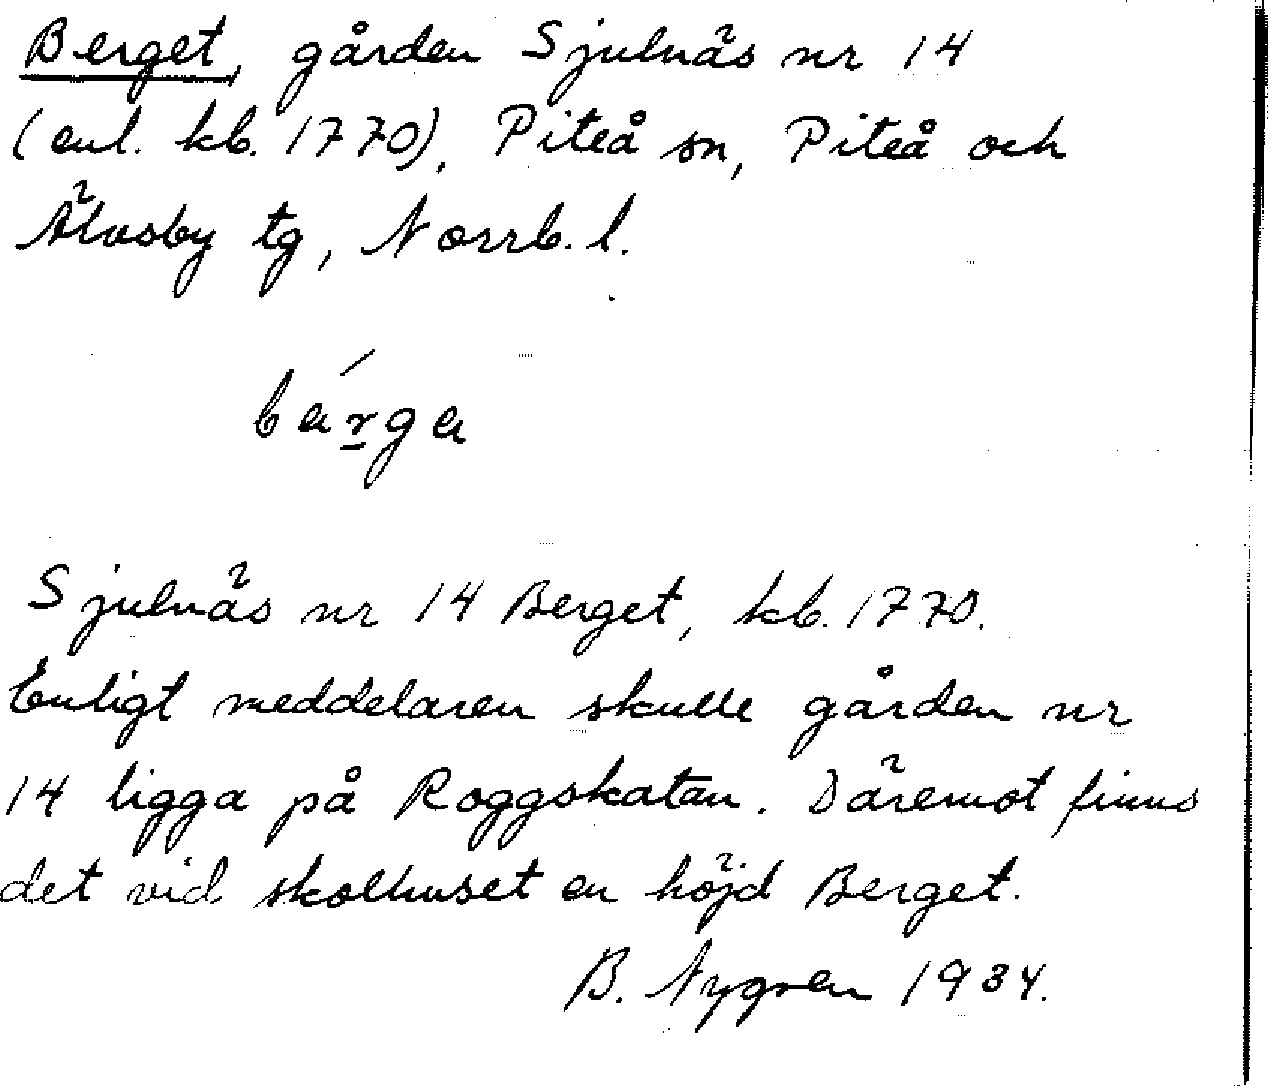 Berget, gården Sjulnäs nr 14
(enl. kb. 1770), Piteå sn, Piteå och
Älvsby tg, Norrb. l.
bárga
Sjulnäs nr 14 Berget, kb. 1770.
Enligt meddelaren skulle gården nr
14 ligga på Roggskatan. Däremot finns
det vid skolhuset en höjd Berget.
B. Nygren 1934.